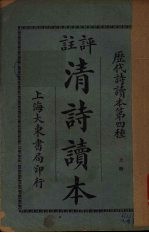 歷代詩讀本第四種
上冊
評註
清詩讀本
上海大東書局印行